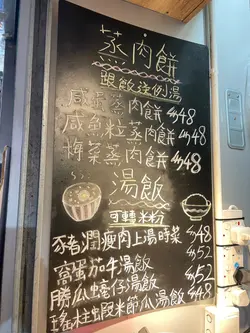 蒸肉餅
跟飲送例湯
咸蛋蒸肉餅 $48
咸魚粒蒸肉餅 $48
梅菜蒸肉餅 $48
湯飯
可轉米粉
豬膶瘦肉上湯時菜 $48
窩蛋茄牛湯飯 $52
勝瓜蠔仔湯飯 $52
瑤柱蝦米節瓜湯飯 $48